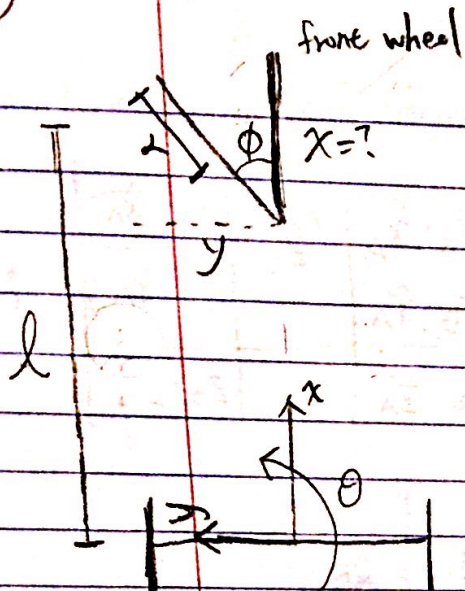 front wheel
ϕ
x=?
y
l
x
θ
y